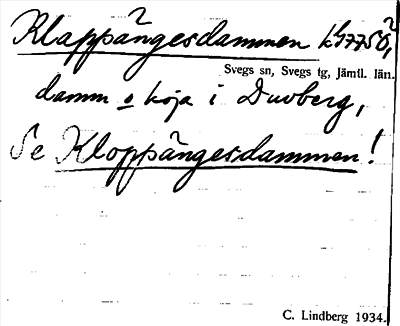 Klappängesdammen
Svegs sn, Svegs tg, Jämtl. län.
damm o höja i Duvberg,
Se Kloppängesdammen!
C. Lindberg 1934.